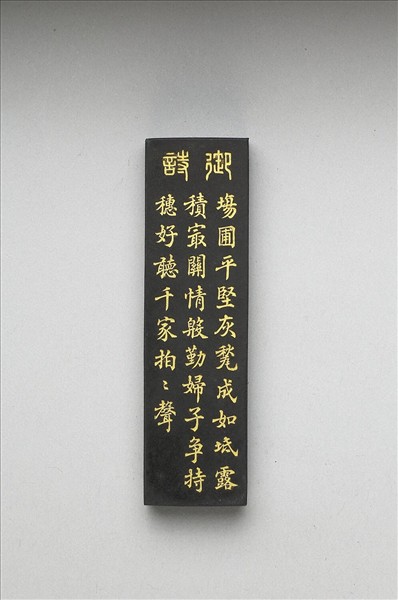 御詩
塲圃平堅灰甃成如坻露
積㝡關情殷勤婦子争持
穗好聽千家拍〻聲